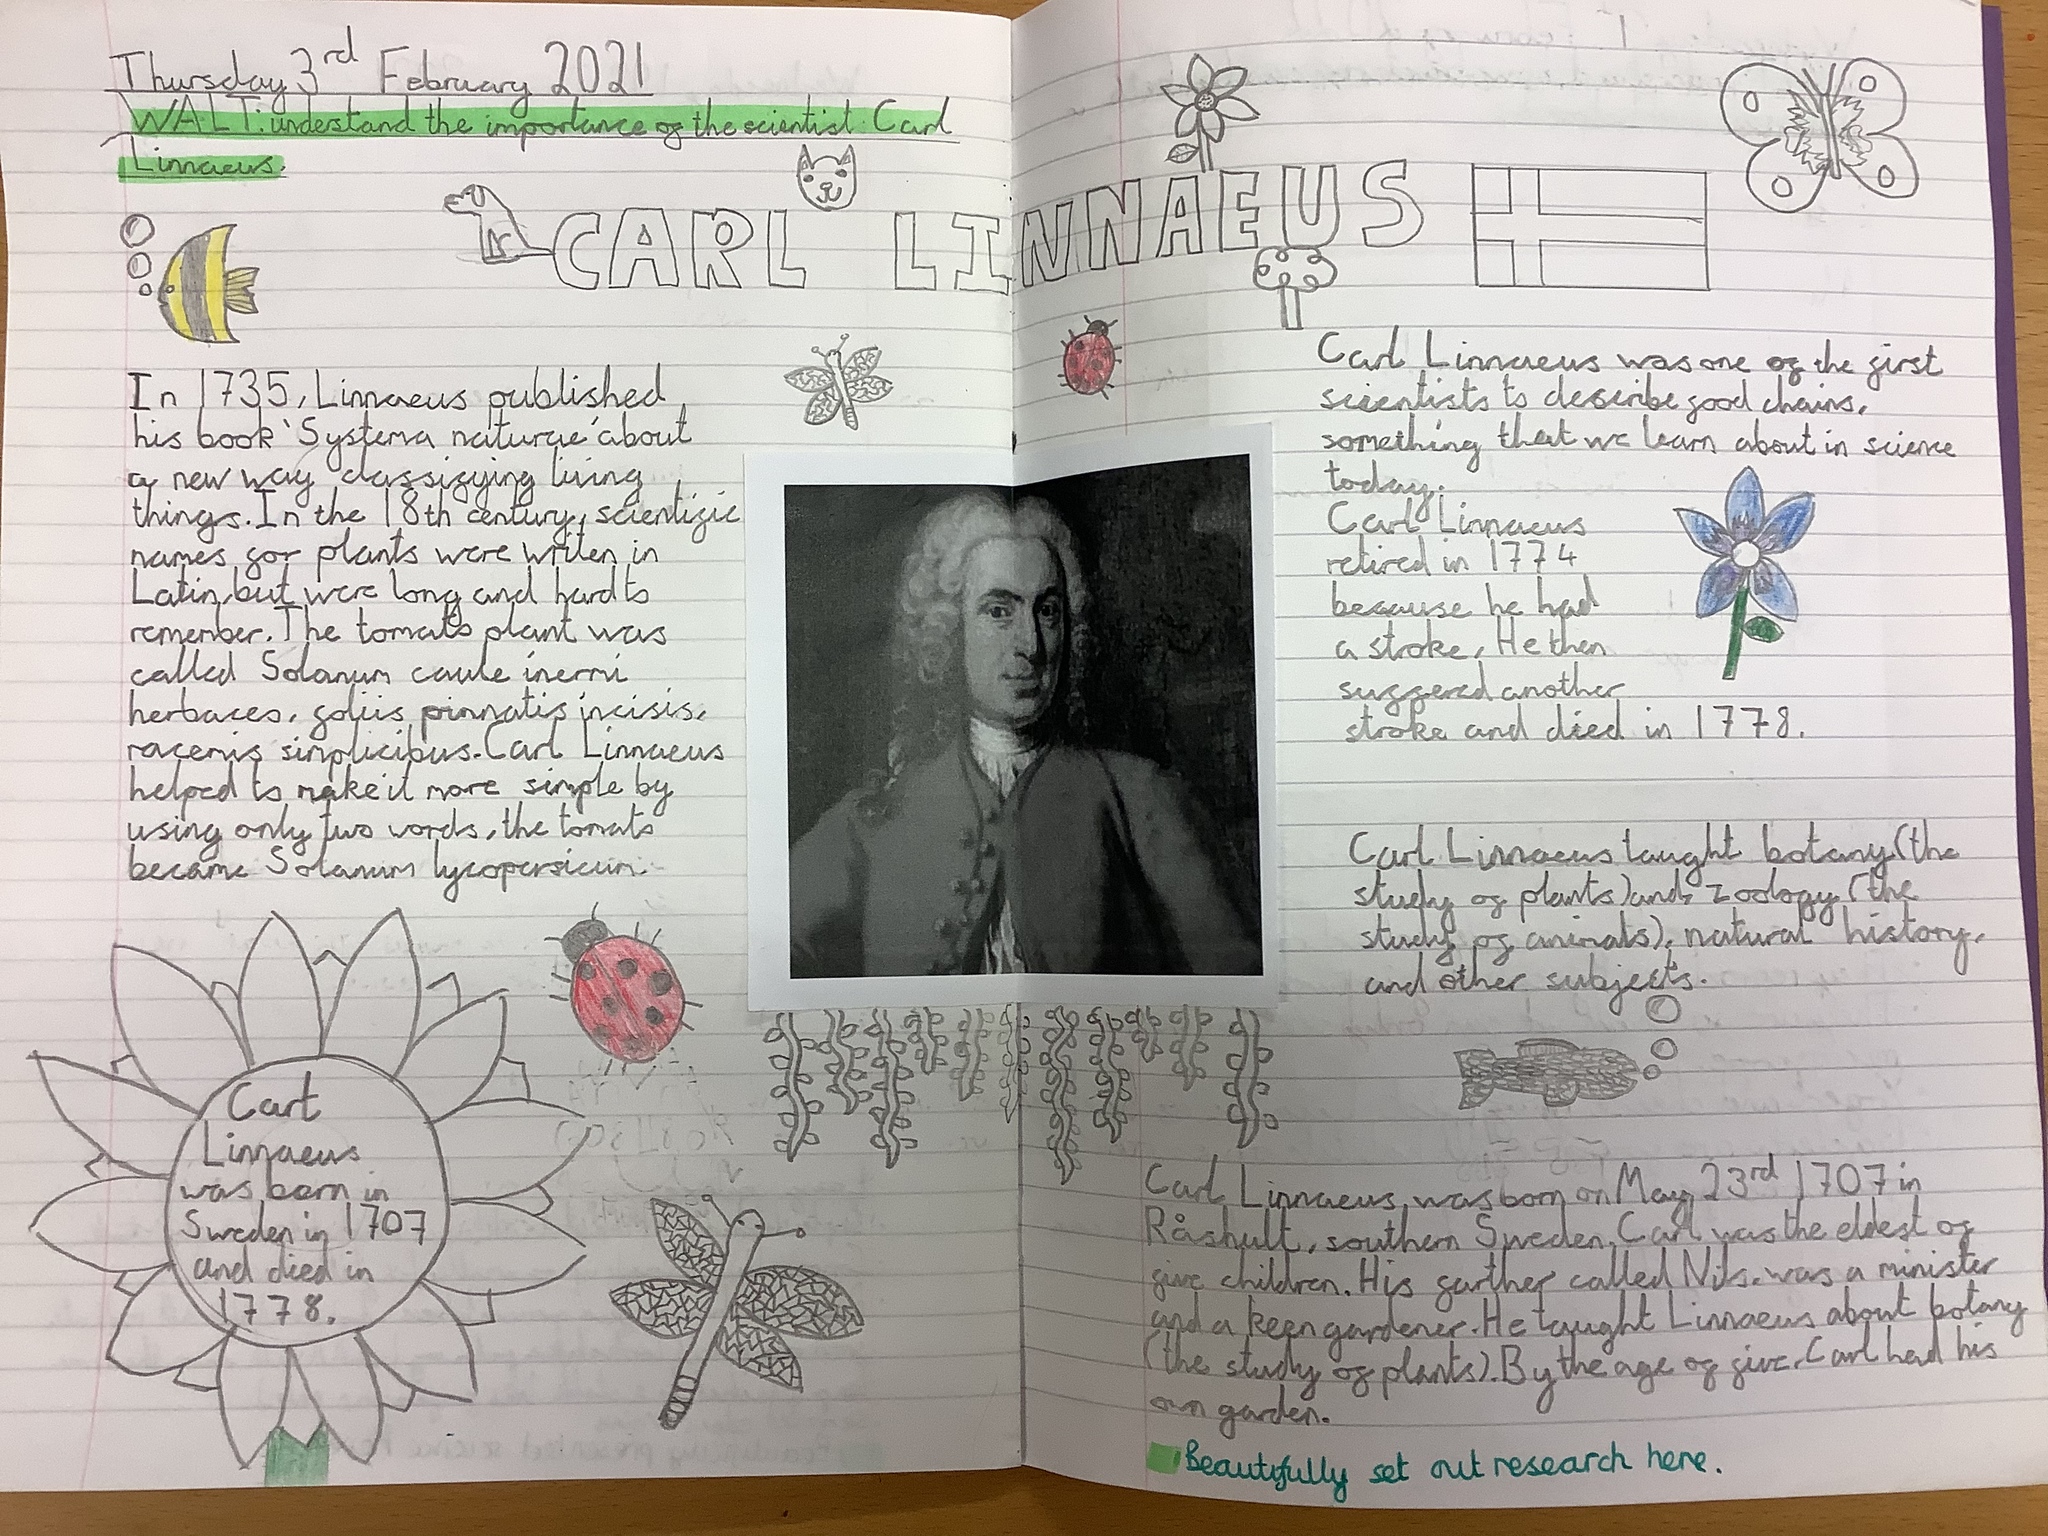 Thursday 3rd February 2021
WALT: understand the importance of the scientist Carl
Linnaeus.
CARL LINNAEUS
In 1735, Linnaeus published
his book 'Systema naturae' about
a new way classifying living
things. In the 18th century, scientific
names for plants were writen in
Latin, but were long and hard to
remember. The tomato plant was
called Solanum caule inermi
herbaces, foliis pinnatis incisis,
racemis simplicibus. Carl Linnaeus
helped to make it more simple by
using only two words, the tomato
became Solanum lycopersicum.
Carl
Linnaeus
was born in
Sweden in 1707
and died in
1778.
Carl Linnaeus was one of the first
scientists to describe food chains,
something that we learn about in science
today.
Carl Linnaeus
retired in 1774
because he had
a stroke. He then
suffered another
stroke and died in 1778.
Carl Linnaeus taught botany (the
study of plants) and, zoology (the
study of animals), natural history,
and other subjects.
Carl Linnaeus was born on May 23rd 1707 in
Råshult, southern Sweden. Carl was the eldest of
five children. His farther called Nils, was a minister
and a keen gardener. He taught Linnaeus about botany
(the study of plants). By the age of five, Carl had his
own garden.
Beautifully set out research here.